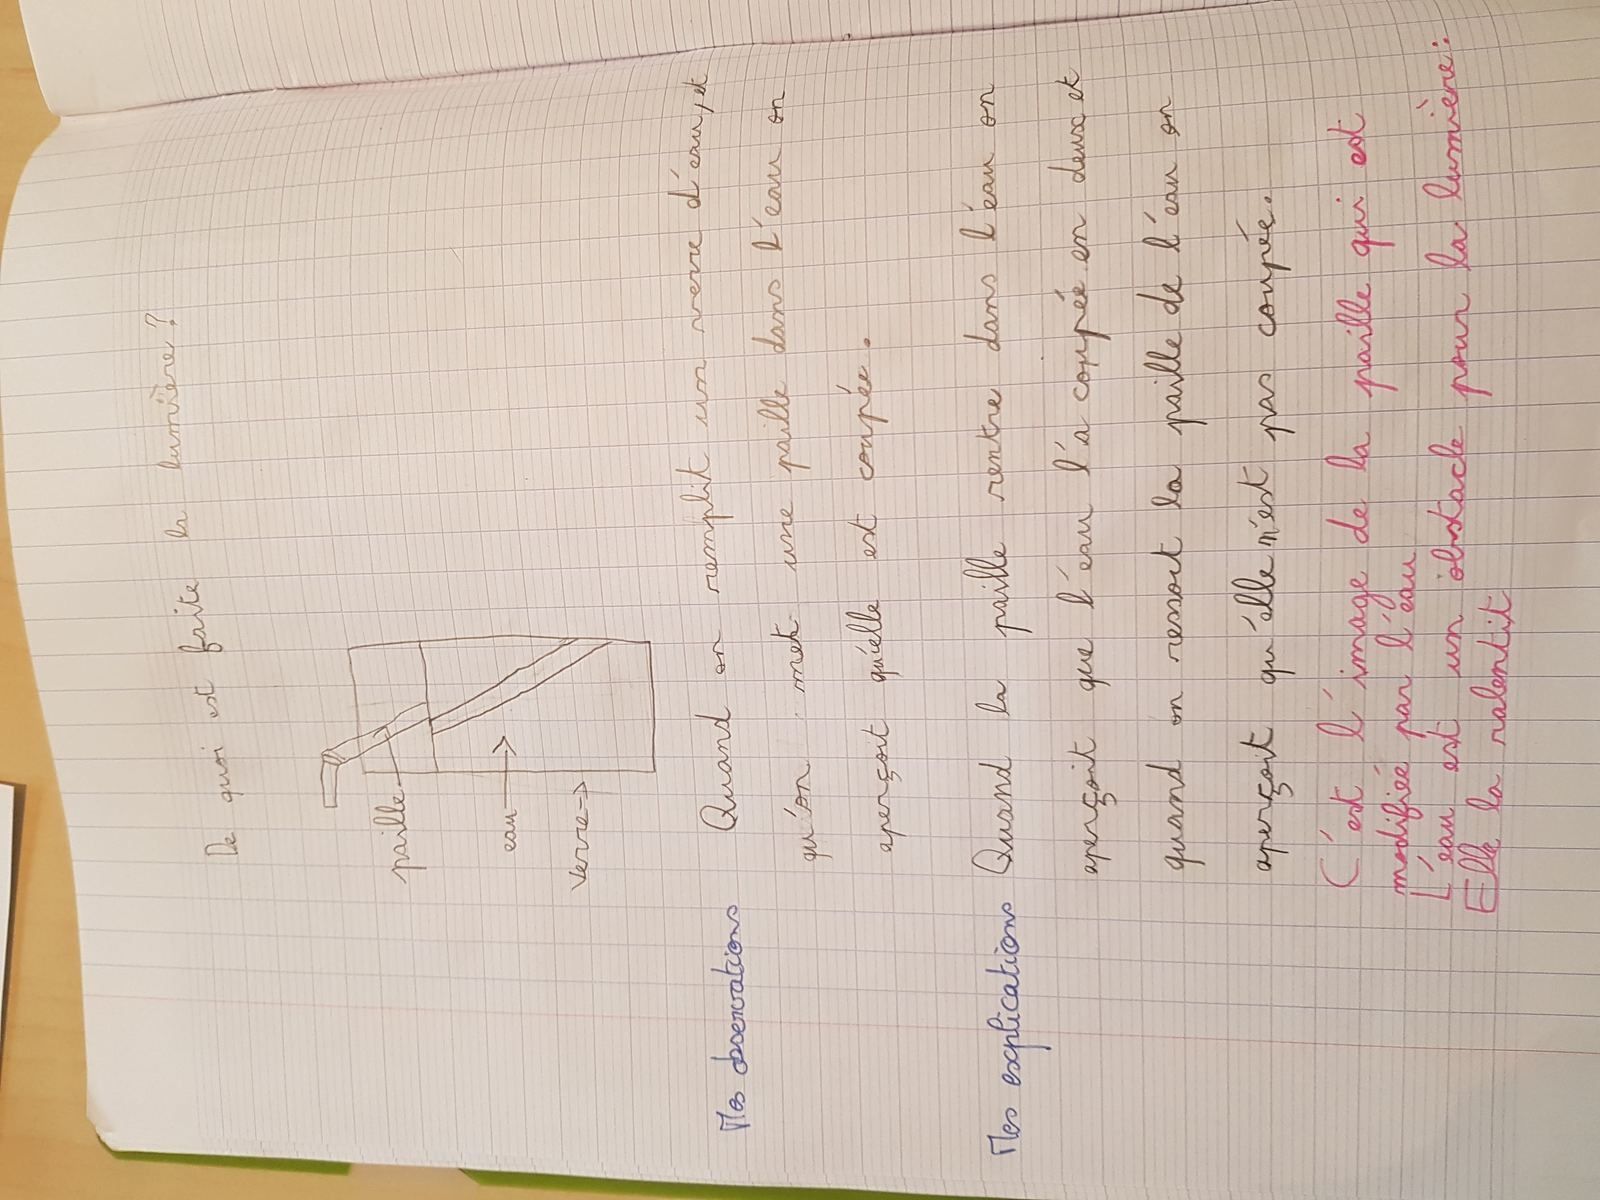 De quoi est faite la lumière ?
paille
eau
verre
Mes observations Quand on remplit un verre d'eau, et
qu'on met une paille dans l'eau on
aperçoit qu'elle est coupée.
Mes explications Quand la paille rentre dans l'eau on
aperçoit que l'eau l'a coupée en deux et
quand on ressort la paille de l'eau on
aperçoit qu'elle n'est pas coupée.
C'est l'image de la paille qui est
modifiée par l'eau
L'eau est un obstacle pour la lumière :
Elle la ralentit